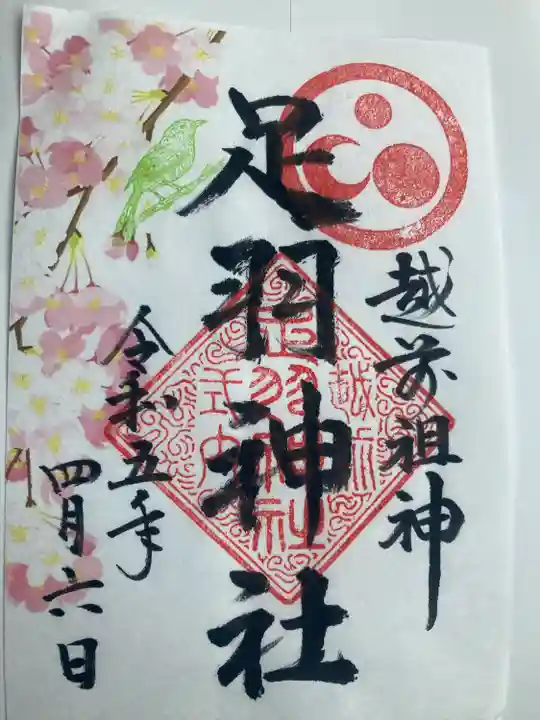 越前祖神
足羽神社
越前
足羽神社
式内
令和五年
四月六日